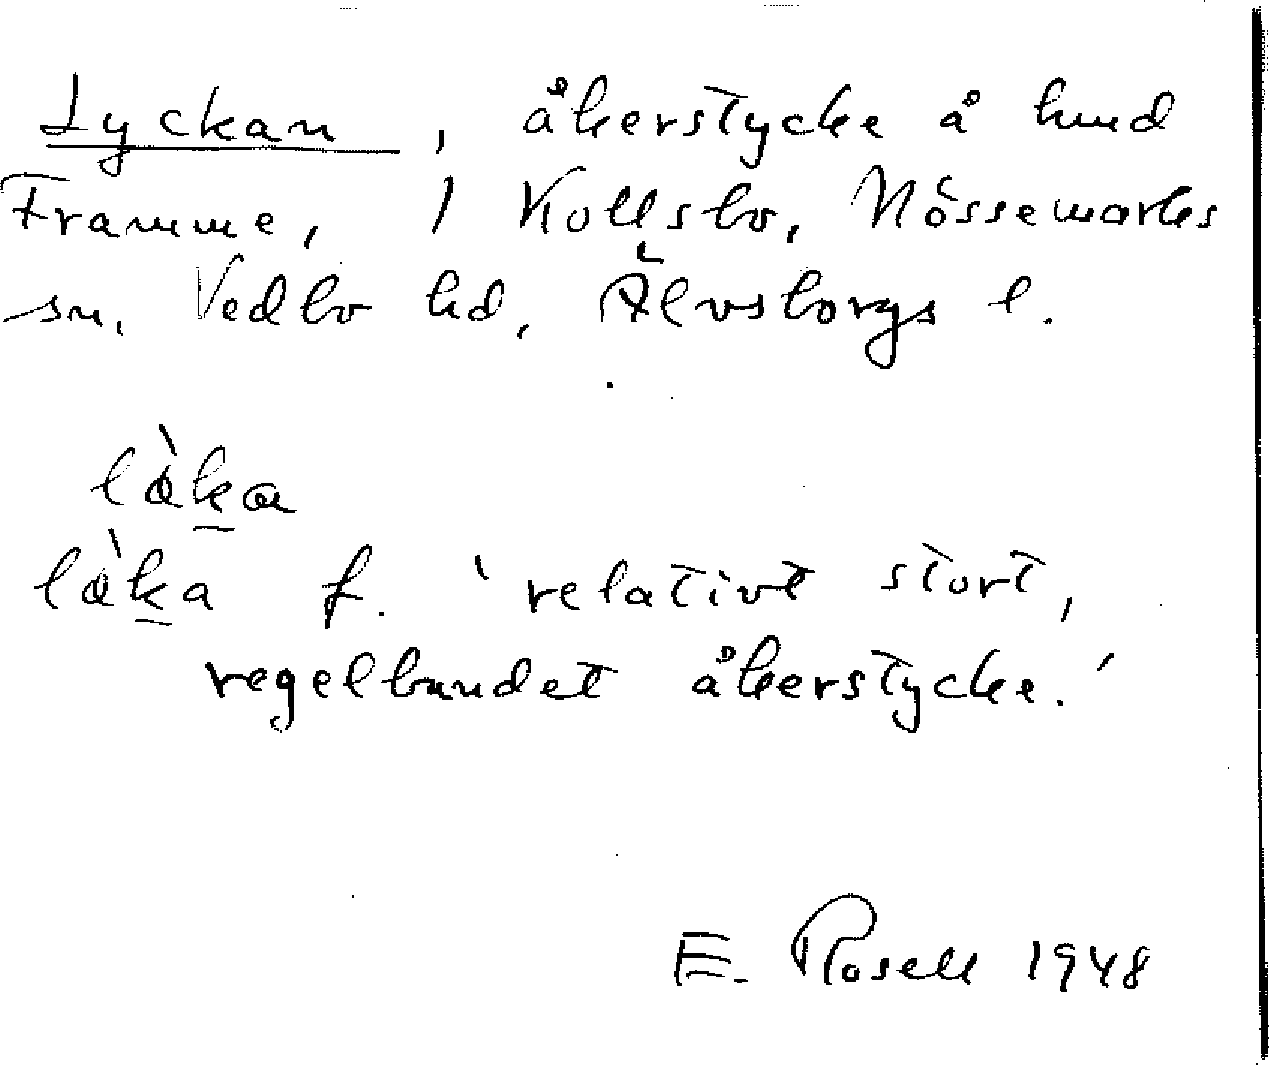 Lyckan, åkerstycke å hmd
Framme, 1 Kollsbo, Nössemarks
sn, Vedbo hd, Älvsborgs l.
lǜka
lǜka f. 'relativt stort,
regelbundet åkerstycke.'
E. Rosell 1948